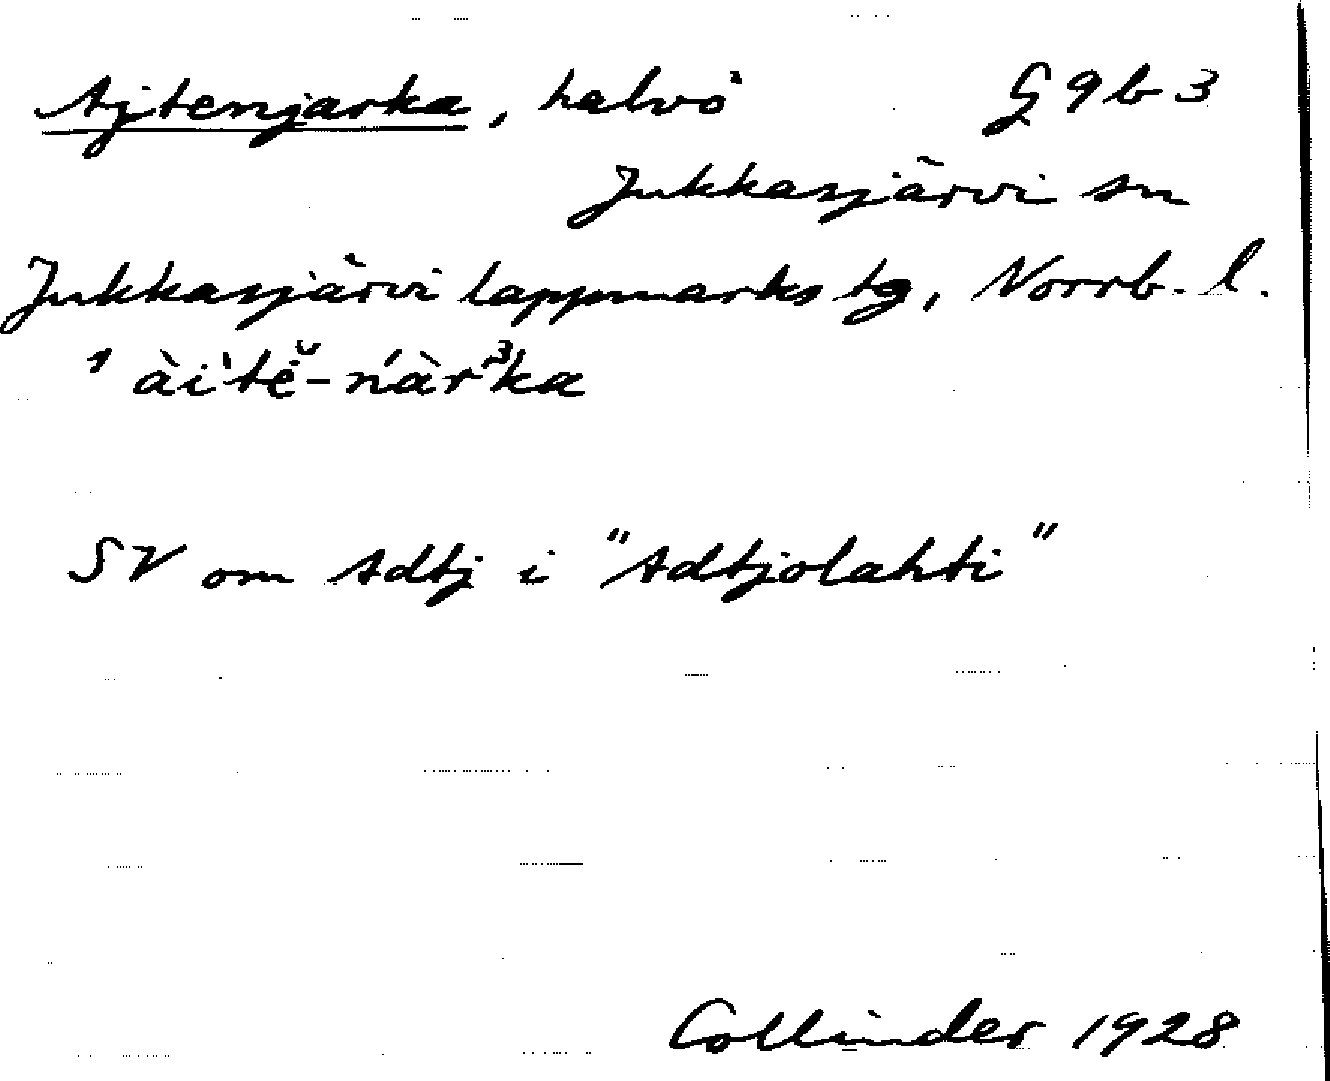 Ajtenjarka, halvö G 9 b 3
Jukkasjärvi sn
Jukkasjärvi lappmarks tg, Norrb. l.
1 ài'tĕ-ńàr³ka
SV om Adtj i "Adtjolahti"
Collinder 1928